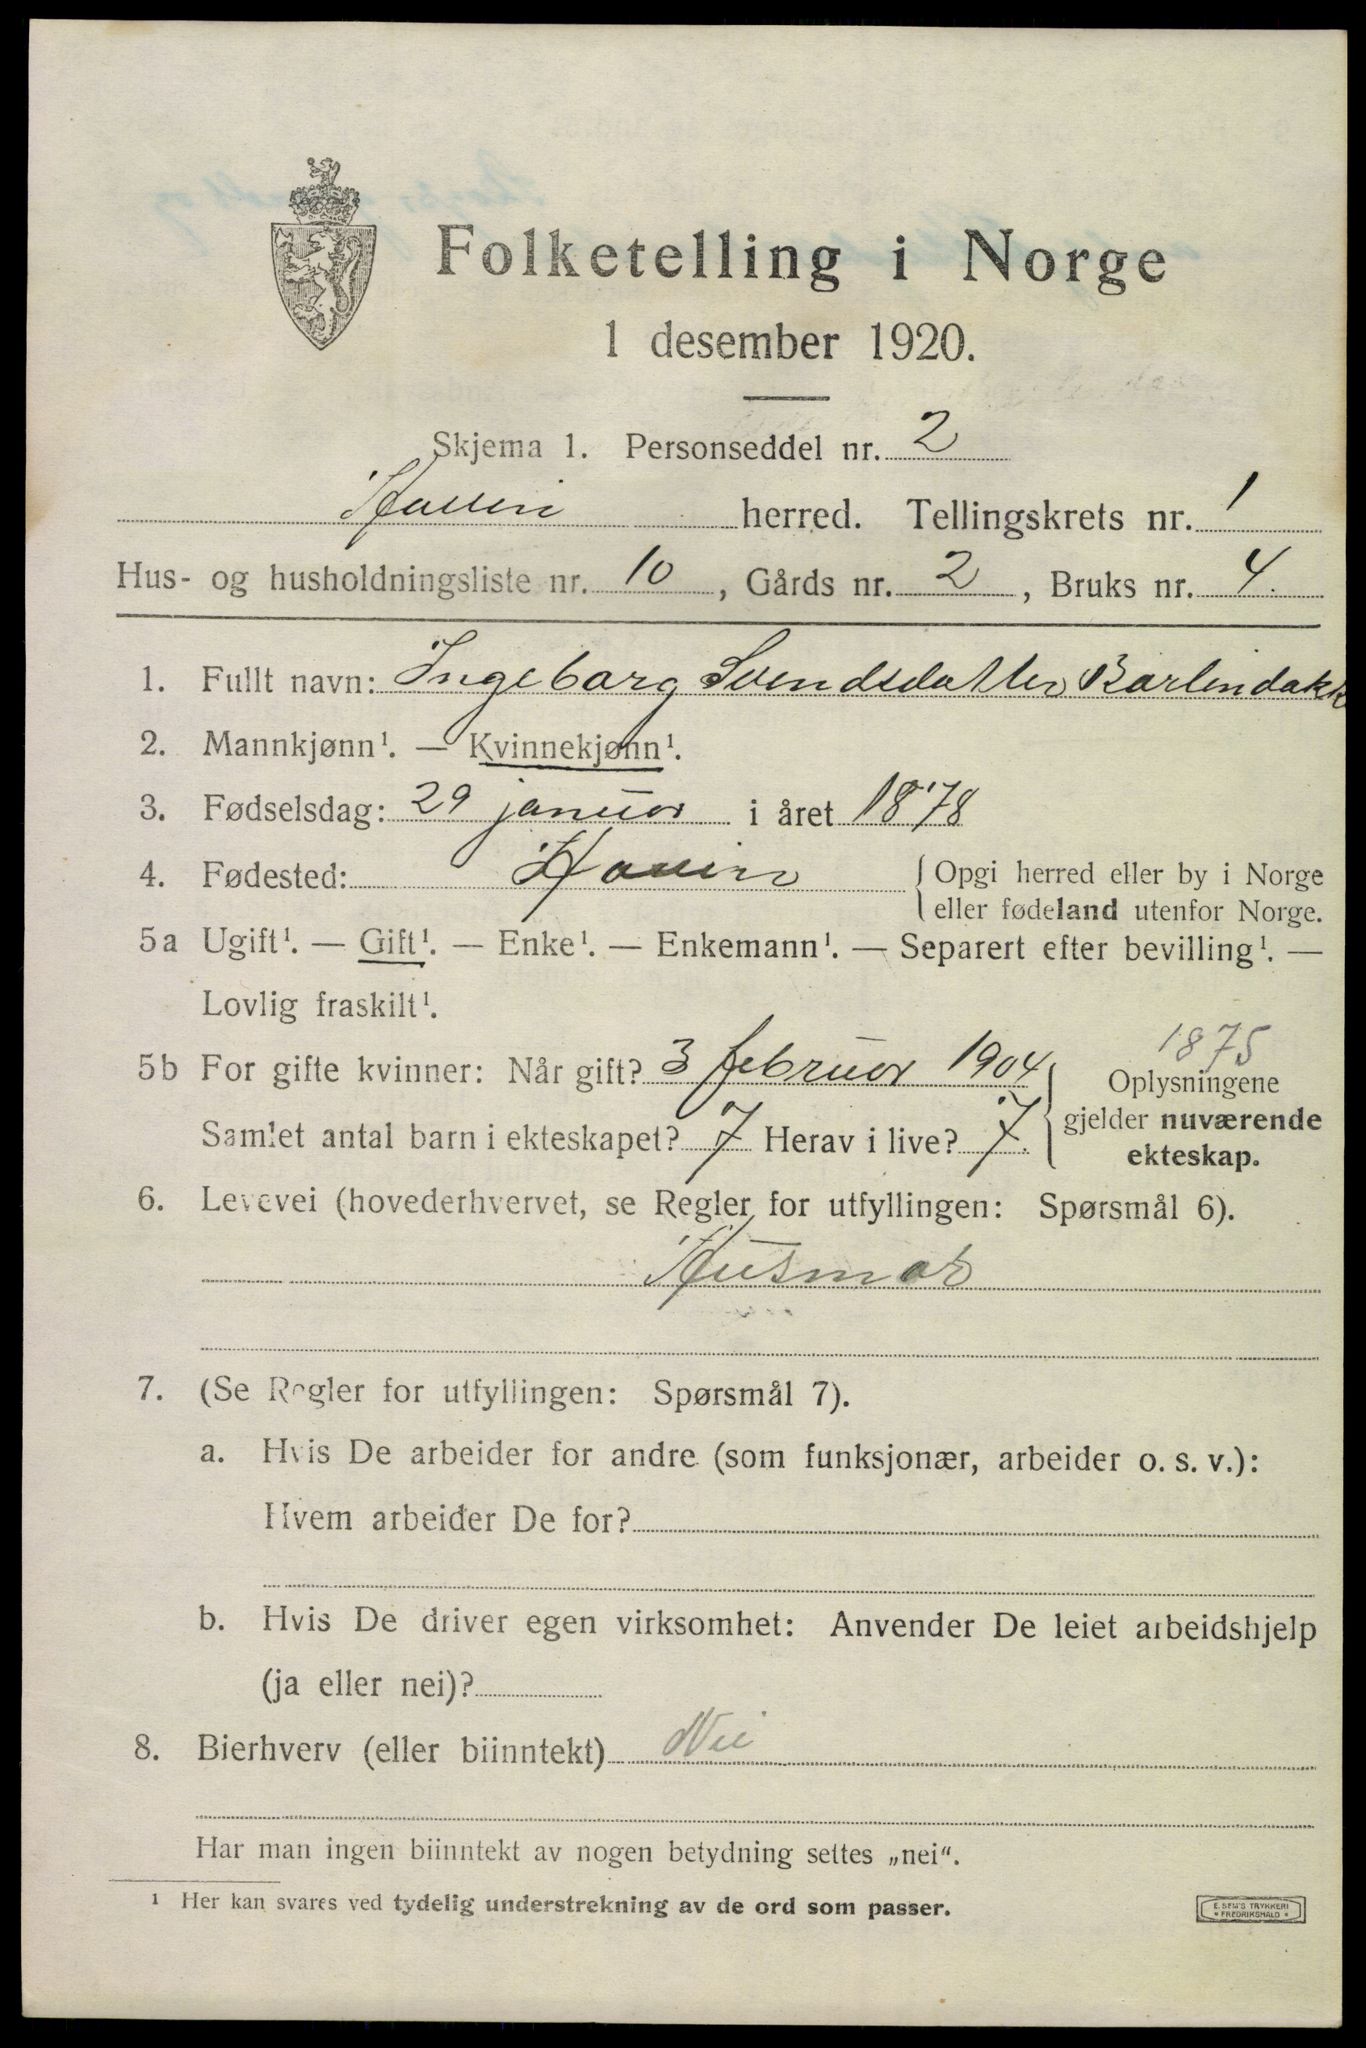 Folketelling i Norge
1 desember 1920.
Skjema 1. Personseddel nr. 2
Hovin herred. Tellingskrets nr. 1
Hus- og husholdningsliste nr. 10, Gårds nr. 2, Bruks nr. 4.
1. Fullt navn: Ingeborg Svendsdatter Barlindakk
2. Mannkjønn¹. — Kvinnekjønn¹.
3. Fødselsdag: 29 januar i året 1878
4. Fødested: Hovin { Opgi herred eller by i Norge
eller fødeland utenfor Norge.
5a Ugift¹. — Gift¹. — Enke¹. — Enkemann¹. — Separert efter bevilling¹. —
Lovlig fraskilt¹.
1875
5b For gifte kvinner: Når gift? 3 februar 1904 { Oplysningene
gjelder nuværende
Samlet antal barn i ekteskapet? 7 Herav i live? 7.
ekteskap.
6. Levevei (hovederhvervet, se Regler for utfyllingen: Spørsmål 6).
Husmor
7. (Se Regler for utfyllingen: Spørsmål 7).
a. Hvis De arbeider for andre (som funksjonær, arbeider o. s. v.):
Hvem arbeider De for?
b. Hvis De driver egen virksomhet: Anvender De leiet arbeidshjelp
(ja eller nei)?
8. Bierhverv (eller biinntekt) Nei
Har man ingen biinntekt av nogen betydning settes „nei“.
¹ Her kan svares ved tydelig understrekning av de ord som passer.
E. SEM'S TRYKKERI
* FREDRIKSHALD *